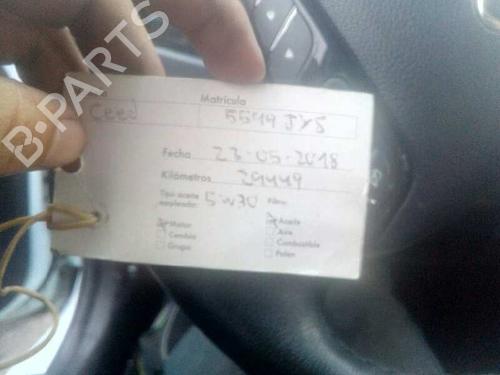 B-PARTS
Matrícula
Ceed 5549 JYS
Fecha 23-05-2018
Kilómetros 29449
Tipo aceite empleado: 5W30 Filtro:
Motor Aceite
Cambio Aire
Grupo Combustible
Polen